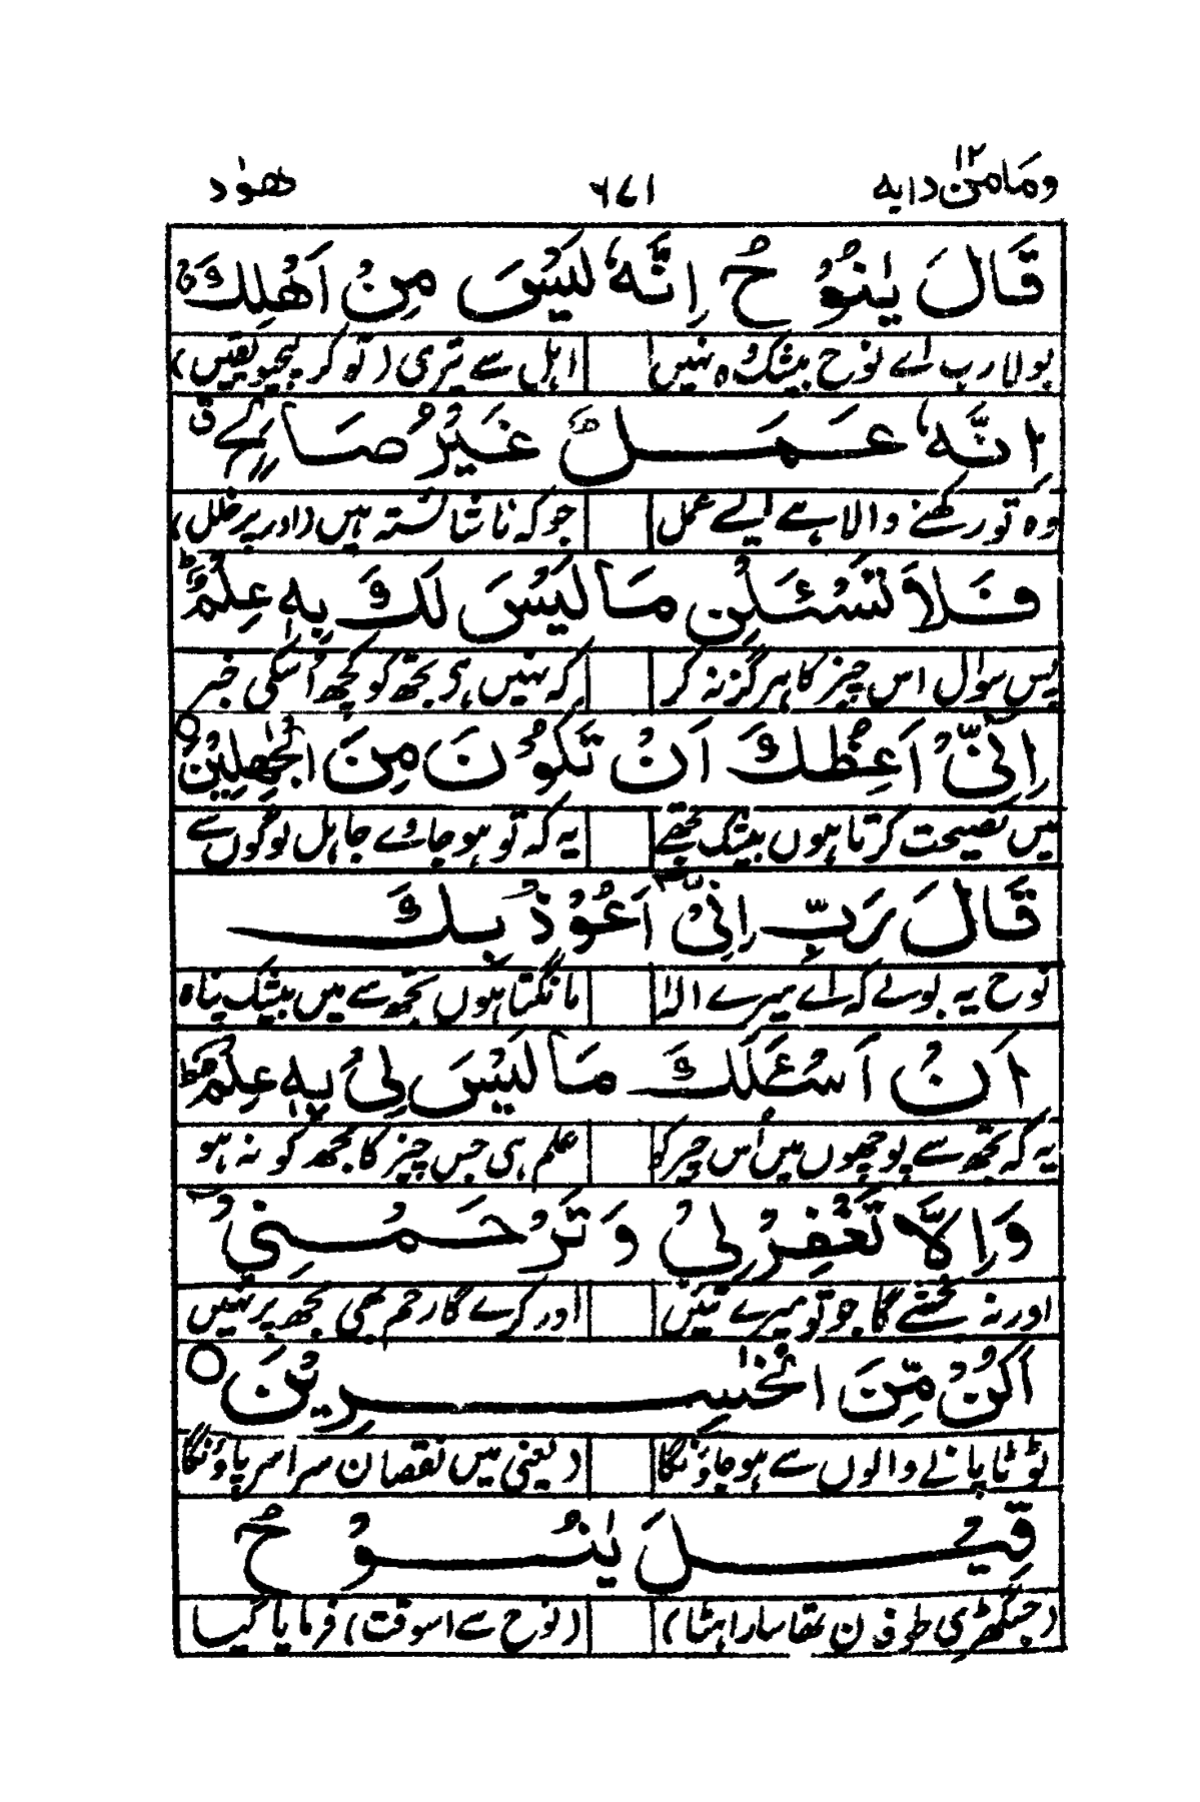 ومامن دابه ۱۲ ۶۷۱ هود
قَالَ يٰنُوْحُ اِنَّهٗ لَيْسَ مِنْ اَهْلِكَ
بولا رب اے نوح بیشک وہ نہیں اہل سے تیری (تو کر لیجیو یقیں)
اِنَّهٗ عَمَلٌ غَيْرُ صَالِحٍ
وہ تو رکھنے والا ہے ایسے عمل جو کہ ناشائستہ ہیں (اور پر خلل)
فَلَا تَسْـَٔلْنِ مَا لَيْسَ لَكَ بِهٖ عِلْمٌ ؕ
پس سوال اس چیز کا ہرگز نہ کر کہ نہیں ہی تجھ کو کچھ اُسکی خبر
اِنِّىْٓ اَعِظُكَ اَنْ تَكُوْنَ مِنَ الْجٰهِلِيْنَ ○
میں نصیحت کرتا ہوں بیشک تجھے یہ کہ تو ہو جاوے جاہل لوگوں سے
قَالَ رَبِّ اِنِّىْٓ اَعُوْذُ بِكَ
نوح یہ بولے کہ اے میرے الہٰ مانگتا ہوں تجھ سے میں بیشک پناہ
اَنْ اَسْـَٔلَكَ مَا لَيْسَ لِىْ بِهٖ عِلْمٌ ؕ
یہ کہ تجھ سے پوچھوں میں اُس چیز کو علم ہی جس چیز کا مجھ کو نہ ہو
وَاِلَّا تَغْفِرْ لِىْ وَتَرْحَمْنِىْٓ
اور نہ بخشے گا جو تو میرے تئیں اور کرے گا رحم بھی مجھ پر نہیں
اَكُنْ مِّنَ الْخٰسِرِيْنَ ○
ٹوٹا پانے والوں سے ہو جاؤنگا (یعنی میں نقصان سراسر پاؤنگا
قِيْلَ يٰنُوْحُ
(جس گھڑی طوفان تھا سارا ہٹا) (نوح سے اسوقت) فرمایا گیا